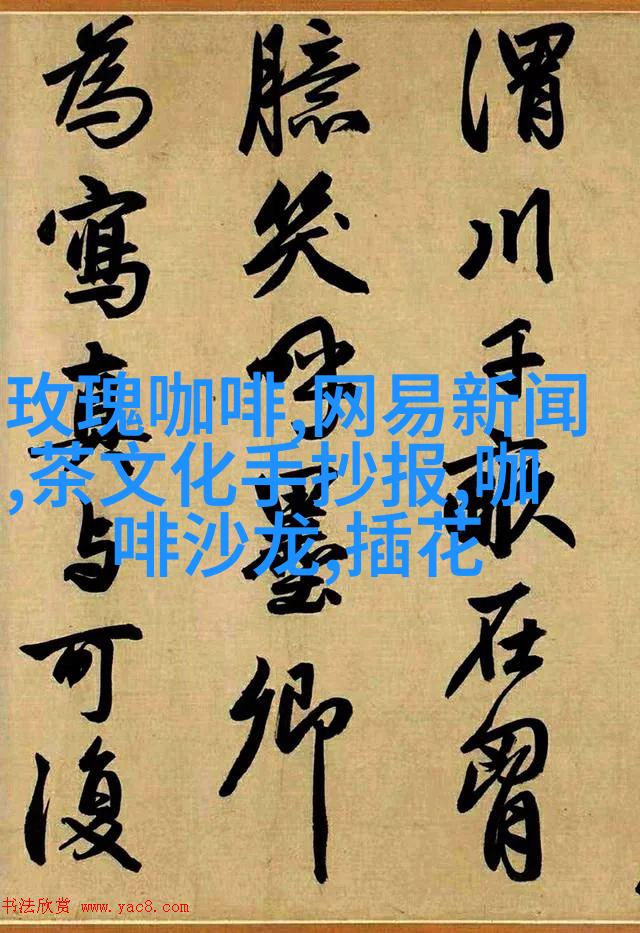 渭川千畝在胷
臆笑呼墨卿
為寫真与可復
玫瑰咖啡,网易新闻
,茶文化手抄报,咖
啡沙龙,插花
书法欣赏 www.yac8.com